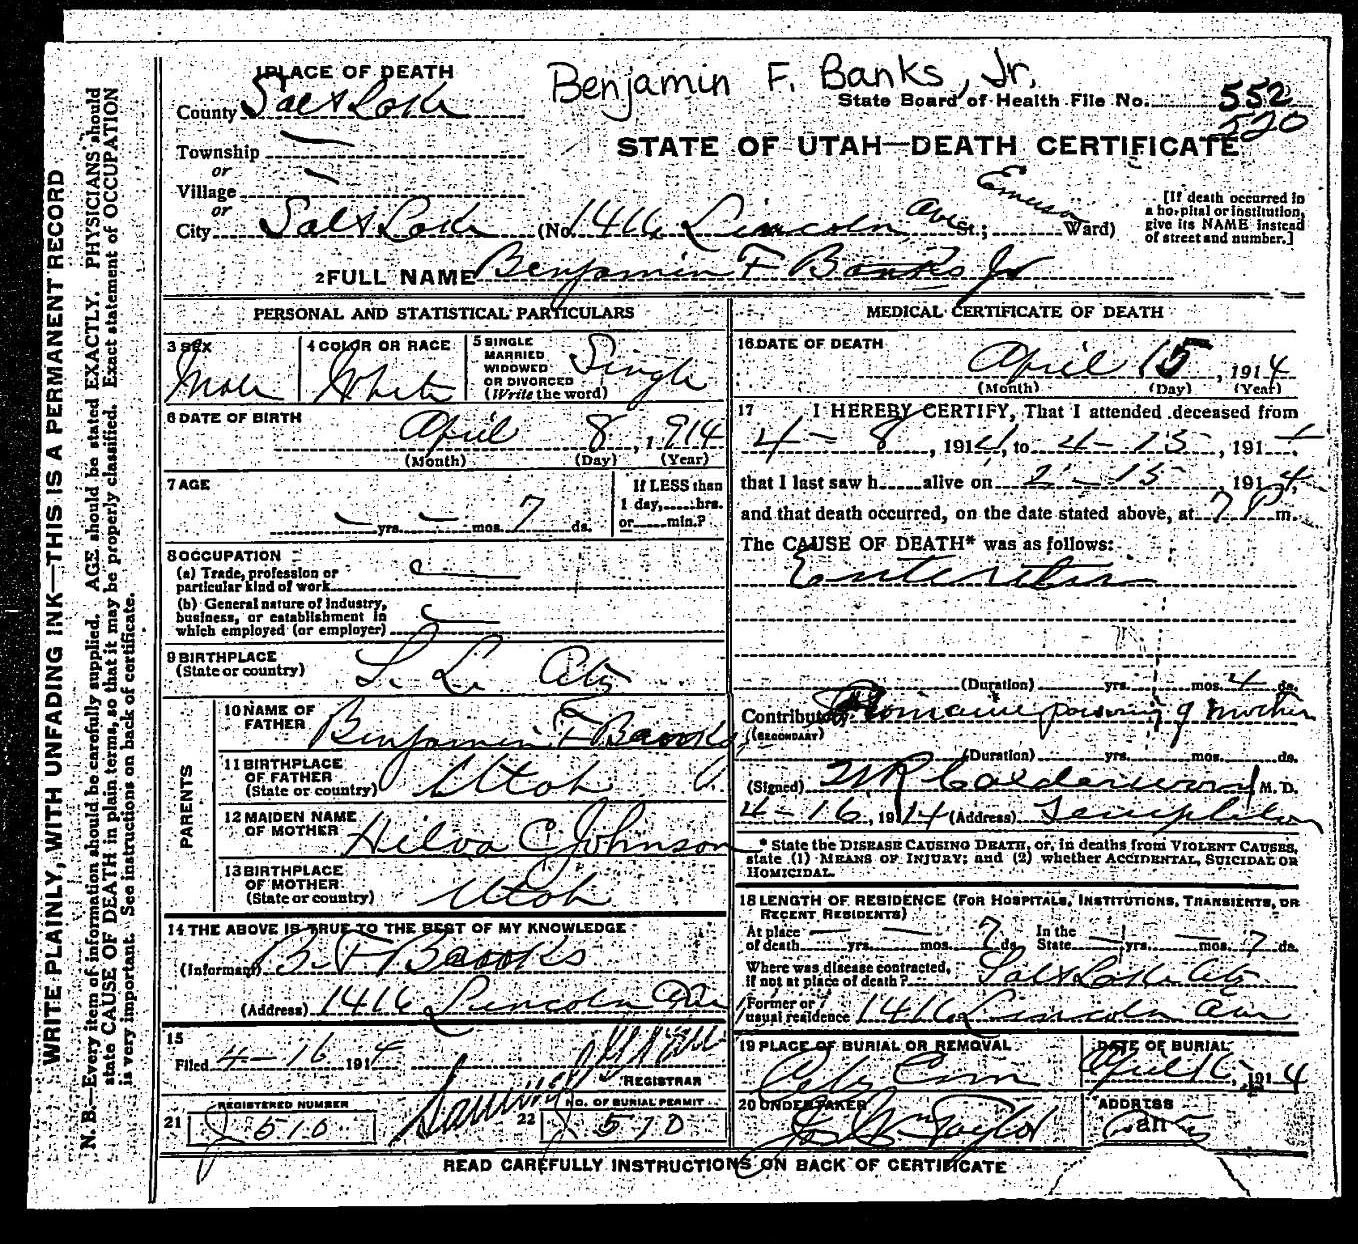 Benjamin F. Banks, Jr.
1 PLACE OF DEATH
County Salt Lake
State Board of Health File No. 552
520
STATE OF UTAH—DEATH CERTIFICATE
Township —
or
Village —
or
City Salt Lake (No. 1416 Lincoln Ave St.; Emerson Ward)
[If death occurred in
a hospital or institution,
give its NAME instead
of street and number.]
2 FULL NAME Benjamin F Banks Jr
PERSONAL AND STATISTICAL PARTICULARS
3 SEX
Male
4 COLOR OR RACE
White
5 SINGLE
MARRIED
WIDOWED
OR DIVORCED
(Write the word)
Single
6 DATE OF BIRTH
April 8, 1914
(Month) (Day) (Year)
7 AGE
— yrs. — mos. 7 ds.
If LESS than
1 day, hrs.
or min.?
8 OCCUPATION
(a) Trade, profession or
particular kind of work
(b) General nature of industry,
business, or establishment in
which employed (or employer)
9 BIRTHPLACE
(State or country)
S. L. City
PARENTS
10 NAME OF
FATHER
Benjamin F
11 BIRTHPLACE
OF FATHER
(State or country)
Utah
12 MAIDEN NAME
OF MOTHER
C Johnson
13 BIRTHPLACE
OF MOTHER
(State or country)
Utah
14 THE ABOVE IS TRUE TO THE BEST OF MY KNOWLEDGE
(Informant) B. F.
(Address) 1416 Lincoln Ave
15
Filed 4-16 1914
REGISTRAR
21 REGISTERED NUMBER
510
22 NO. OF BURIAL PERMIT
510
MEDICAL CERTIFICATE OF DEATH
16 DATE OF DEATH
April 15, 1914
(Month) (Day) (Year)
17 I HEREBY CERTIFY, That I attended deceased from
4-8, 1914, to 4-15, 1914
that I last saw h alive on 15, 1914,
and that death occurred, on the date stated above, at 7 P m.
The CAUSE OF DEATH* was as follows:
Enteritis
(Duration) yrs. mos. 4 ds.
Contributory Ptomaine poisoning of mother
(SECONDARY)
(Duration) yrs. mos. ds.
(Signed) W R Calderwood M. D.
4-16, 1914 (Address) Templeton
* State the DISEASE CAUSING DEATH, or, in deaths from VIOLENT CAUSES,
state (1) MEANS OF INJURY; and (2) whether ACCIDENTAL, SUICIDAL OR
HOMICIDAL.
18 LENGTH OF RESIDENCE (FOR HOSPITALS, INSTITUTIONS, TRANSIENTS, OR
RECENT RESIDENTS)
At place
of death — yrs. — mos. 7 ds.
In the
State — yrs. — mos. 7 ds.
Where was disease contracted,
if not at place of death? Salt Lake City
Former or
usual residence 1416 Lincoln Ave
19 PLACE OF BURIAL OR REMOVAL
City Cem
DATE OF BURIAL
April 16, 1914
20 UNDERTAKER
Jos Wm Taylor
ADDRESS
City
READ CAREFULLY INSTRUCTIONS ON BACK OF CERTIFICATE
WRITE PLAINLY, WITH UNFADING INK—THIS IS A PERMANENT RECORD
N. B.—Every item of information should be carefully supplied. AGE should be stated EXACTLY. PHYSICIANS should
state CAUSE OF DEATH in plain terms, so that it may be properly classified. Exact statement of OCCUPATION
is very important. See instructions on back of certificate.